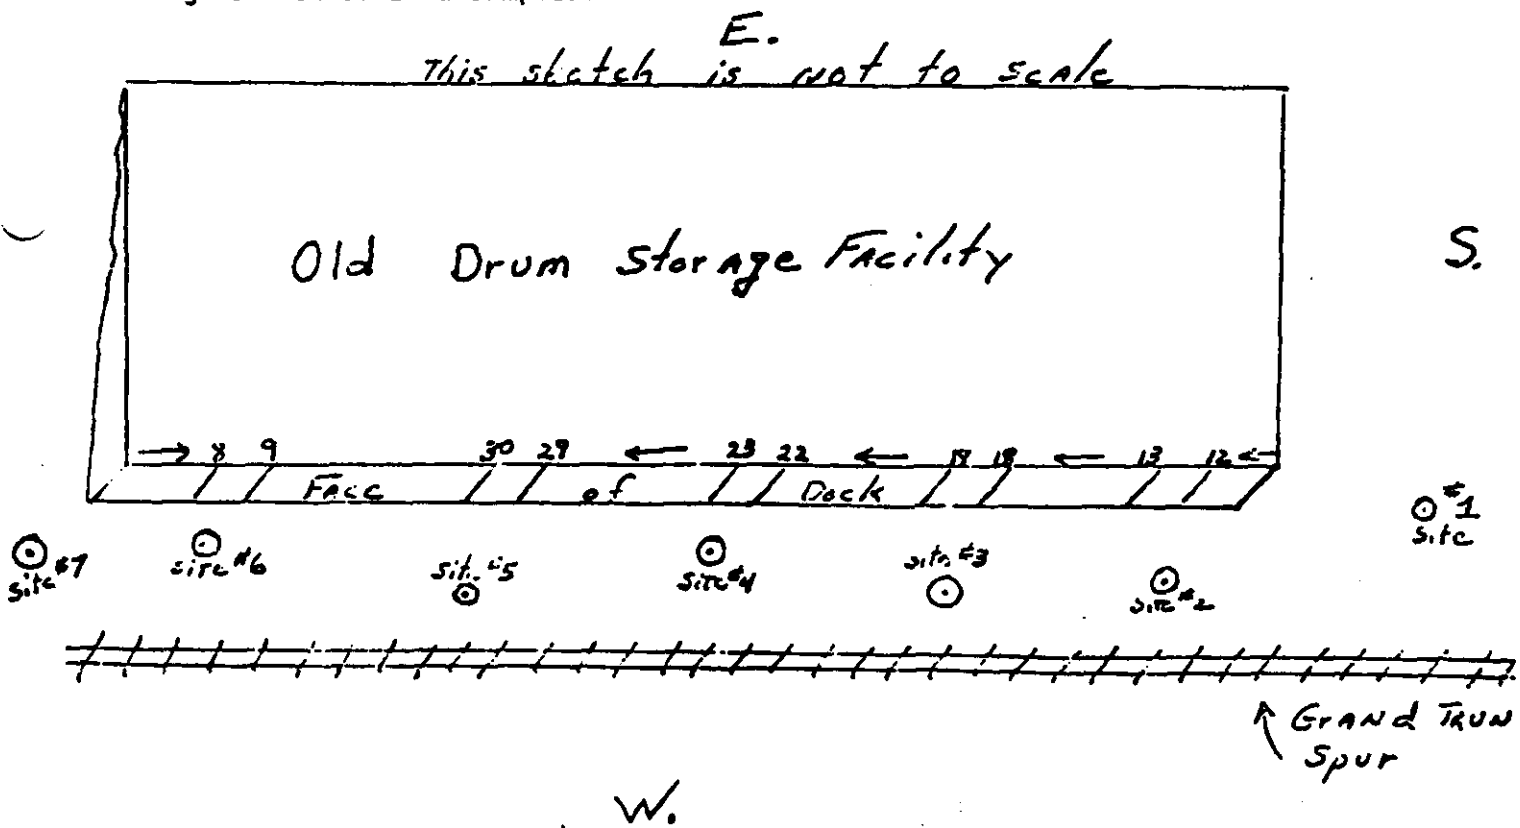 E.
This sketch is not to scale
Old Drum Storage Facility
S.
8 9 30 29 23 22 19 18 13 12
Face of Dock
#1
site
site #7
site #6
site #5
site #4
site #3
site #2
Grand Trun
Spur
W.